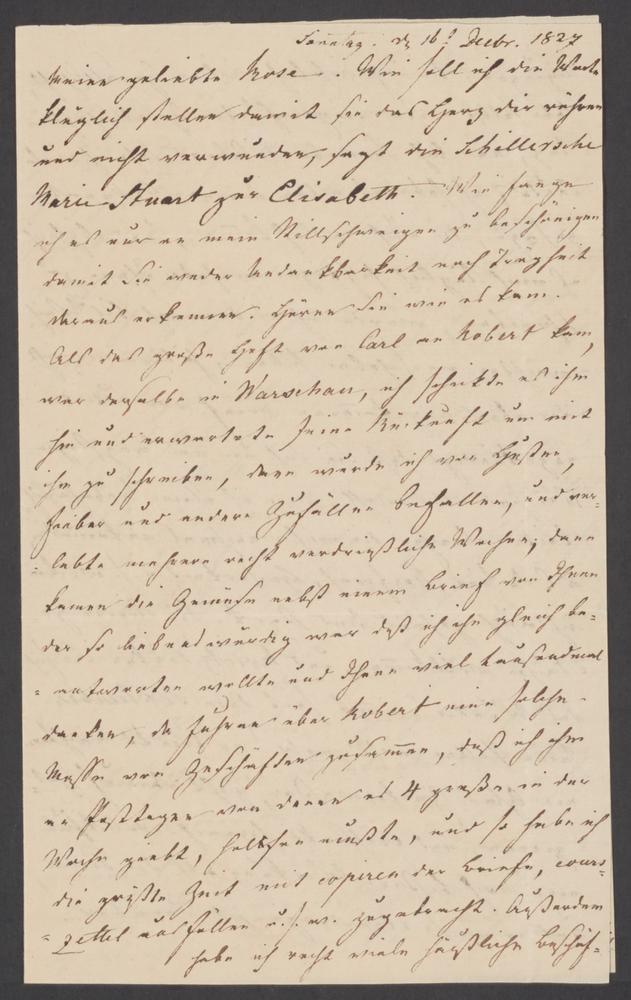 Sonntag. d 16t Decbr. 1827
Meine geliebte Rose. Wie soll ich die Worte
klüglich stellen damit sie das Herz dir rühren
und nicht verwunden, sagt die Schillersche
Marie Stuart zur Elisabeth. Wie fange
ich es nur an mein Stillschweigen zu beschönigen
damit Sie weder Undankbarkeit noch Trägheit
daraus erkennen. Hören Sie wie es kam.
Als das große Heft von Carl an Robert kam,
war derselbe in Warschau, ich schickte es ihm
hin und erwartete seine Rückkunft um mit
ihm zu schreiben, dann wurde ich von Husten,
Fieber und andern Zufällen befallen, und ver-
lebte mehrere recht verdrießliche Wochen; dann
kamen die Gemüse nebst einem Brief von Ihnen
der so liebenswürdig war daß ich ihn gleich be-
-antworten wollte und Ihnen viel tausendmal
danken, da fuhren über Robert eine solche
Masse von Geschäften zusammen, daß ich ihm
an Posttagen von denen es 4 große in der
Woche giebt, helfen mußte, und so habe ich
die größte Zeit mit copiren der Briefe, cours-
-zettel ausfüllen u. s. w. zugebracht. Außerdem
habe ich recht viele häusliche Beschäf-